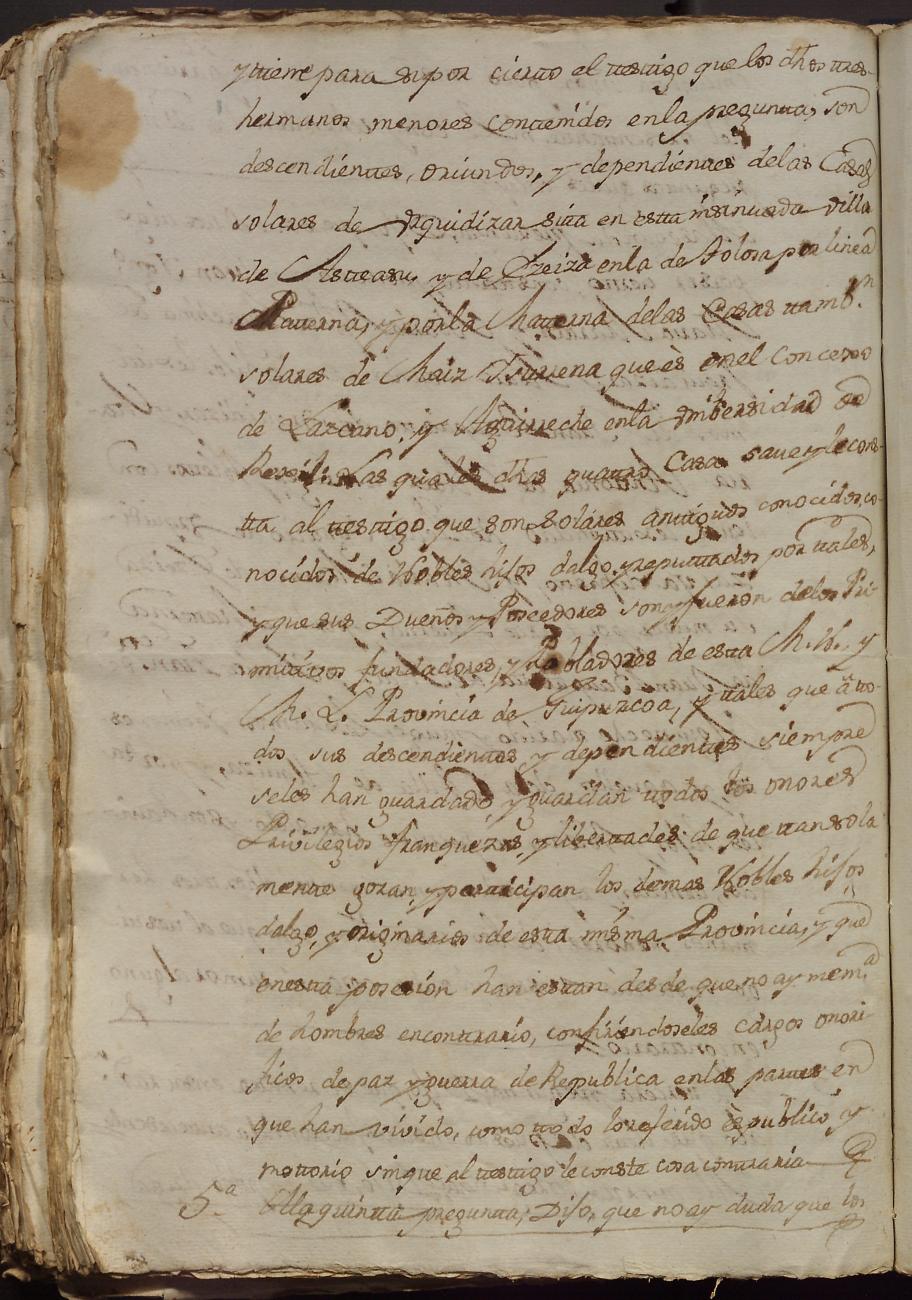 y tiene para si por cierto el testigo que los dhos tres
hermanos menores contenidos en la pregunta, son
descendientes, oriundos, y dependientes de las Casas
solares de Yrquidizar sita en esta insinuada villa
de Asteasu, y de Yzeiza en la de Tolosa por linea
Paterna, y por la Materna de las Casas tambn
solares de Maiz Ysurrena que es en el Concexo
de Lazcano, y Aguirreche en la Vnibersidad de
Rexil: Las quales dhas quatro Casas save y le cons-
ta al testigo que son solares antiguos conocidos, co-
nocidos de Nobles hijos dalgo, reputtados por tales,
y que sus Dueños y Poseedores son y fueron de los Pri-
mitivos fundadores, y Pobladores de esta M. N. y
M. L. Provincia de Guipuzcoa, y tales que â to-
dos sus descendientes y dependientes siempre
seles han guardado, y guardan todos los onores
Privilegios franquezas, y libertades de que tan sola
mente gozan, y participan los demas Nobles hijos
dalgo, y originarios de esta misma Provincia, y que
en esta posesion han estan desde que no ay mema
de hombres en contrario, confiriendoseles cargos onori-
ficos de paz y guerra de Republica en las partes en
que han vivido, como todo lo referido es publico y
nottorio sin que al testigo le conste cosa contraria
5a A la quintta pregunta, Dijo, que no ay duda que los